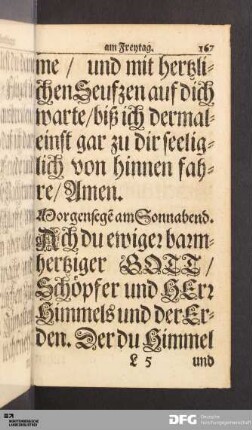 am Freytag. 167
me / und mit hertzli-
chen Seufzen auf dich
warte / biß ich dermal-
einst gar zu dir seelig-
lich von hinnen fah-
re / Amen.
Morgensegẽ am Sonnabend.
Ach du ewiger barm-
hertziger GOTT /
Schöpfer und HErr
Himmels und der Er-
den. Der du Himmel
L 5 und
DFG Deutsche
Forschungsgemeinschaft